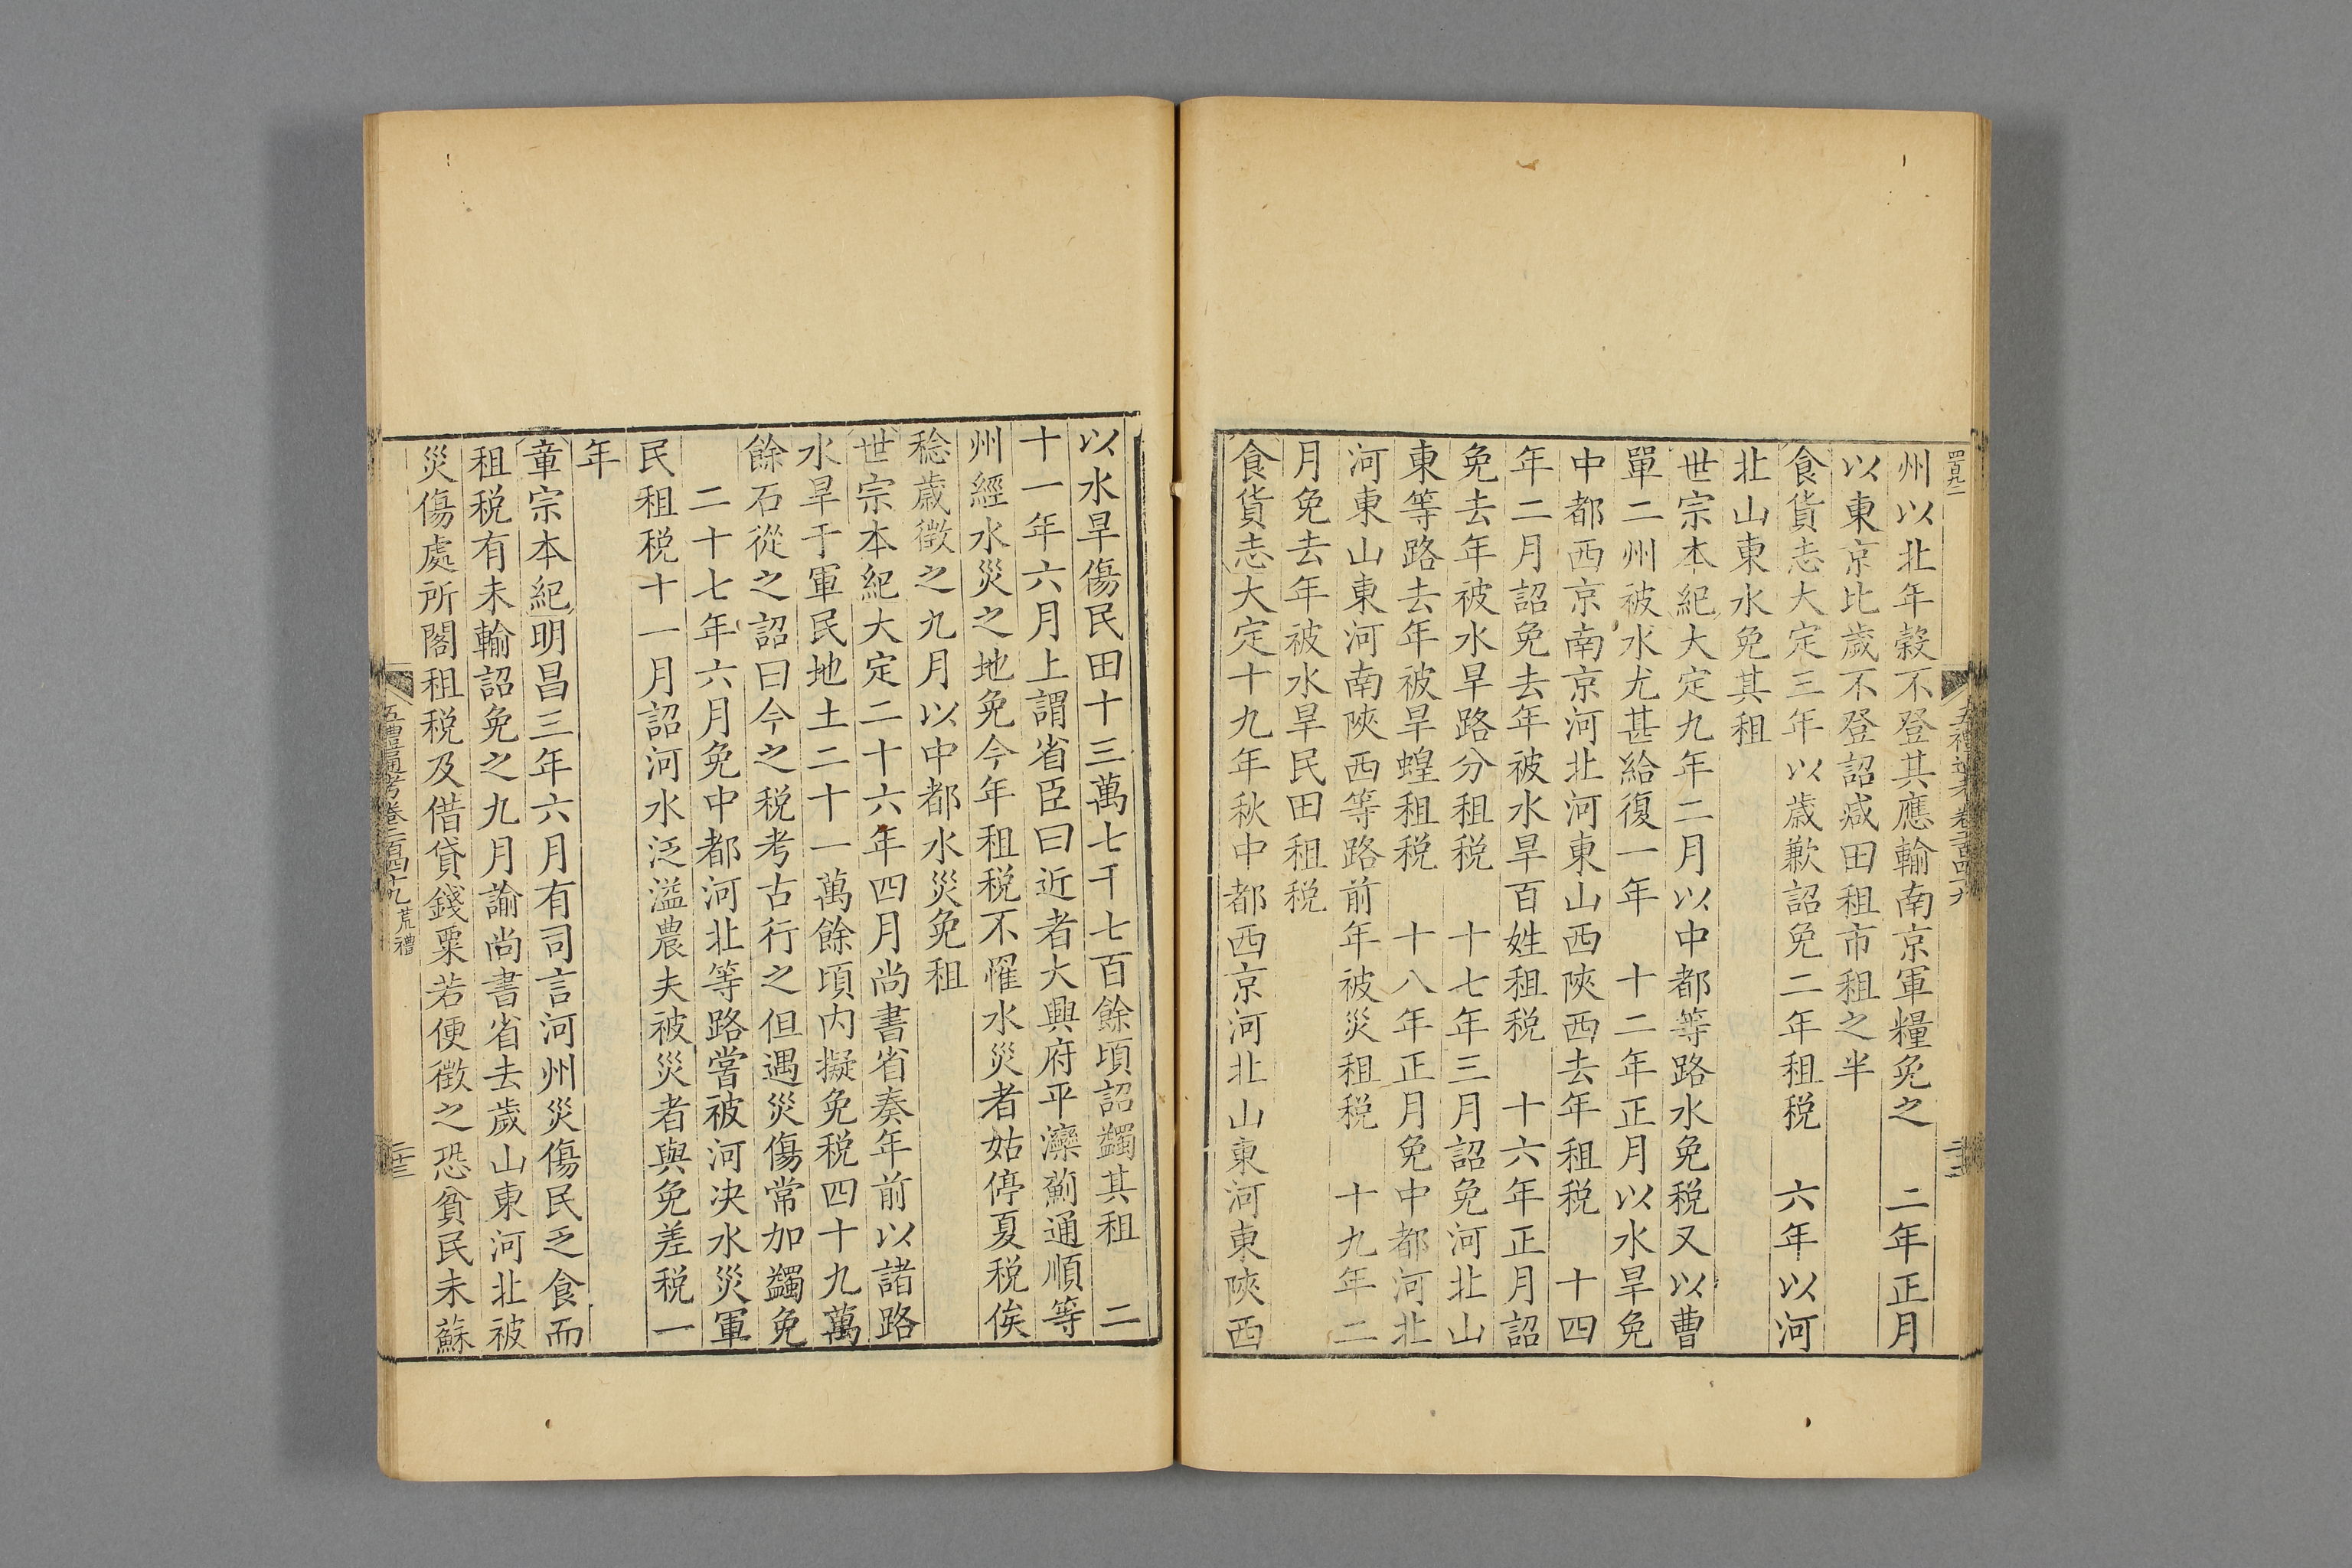 四百九二
五禮通考卷二百四十九
二十二
州以北年穀不登其應輸南京軍糧免之　二年正月
以東京比歲不登詔减田租市租之半
食貨志大定三年以歲歉詔免二年租税　六年以河
北山東水免其租
世宗本紀大定九年二月以中都等路水免税又以曹
單二州被水尤甚給復一年　十二年正月以水旱免
中都西京南京河北河東山西陜西去年租税　十四
年二月詔免去年被水旱百姓租税　十六年正月詔
免去年被水旱路分租税　十七年三月詔免河北山
東等路去年被旱蝗租税　十八年正月免中都河北
河東山東河南陜西等路前年被災租税　十九年二
月免去年被水旱民田租税
食貨志大定十九年秋中都西京河北山東河東陜西
以水旱傷民田十三萬七千七百餘頃詔蠲其租　二
十一年六月上謂省臣曰近者大興府平灤薊通順等
州經水災之地免今年租税不罹水災者姑停夏税俟
稔歲徵之九月以中都水災免租
世宗本紀大定二十六年四月尚書省奏年前以諸路
水旱于軍民地土二十一萬餘頃内擬免税四十九萬
餘石從之詔曰今之税考古行之但遇災傷常加蠲免
二十七年六月免中都河北等路嘗被河决水災軍
民租税十一月詔河水泛溢農夫被災者與免差税一
年
章宗本紀明昌三年六月有司言河州災傷民乏食而
租税有未輸詔免之九月諭尚書省去歲山東河北被
災傷處所閣租税及借貸錢粟若便徵之恐貧民未蘇
五禮通考卷二百四十九 荒禮
二十三